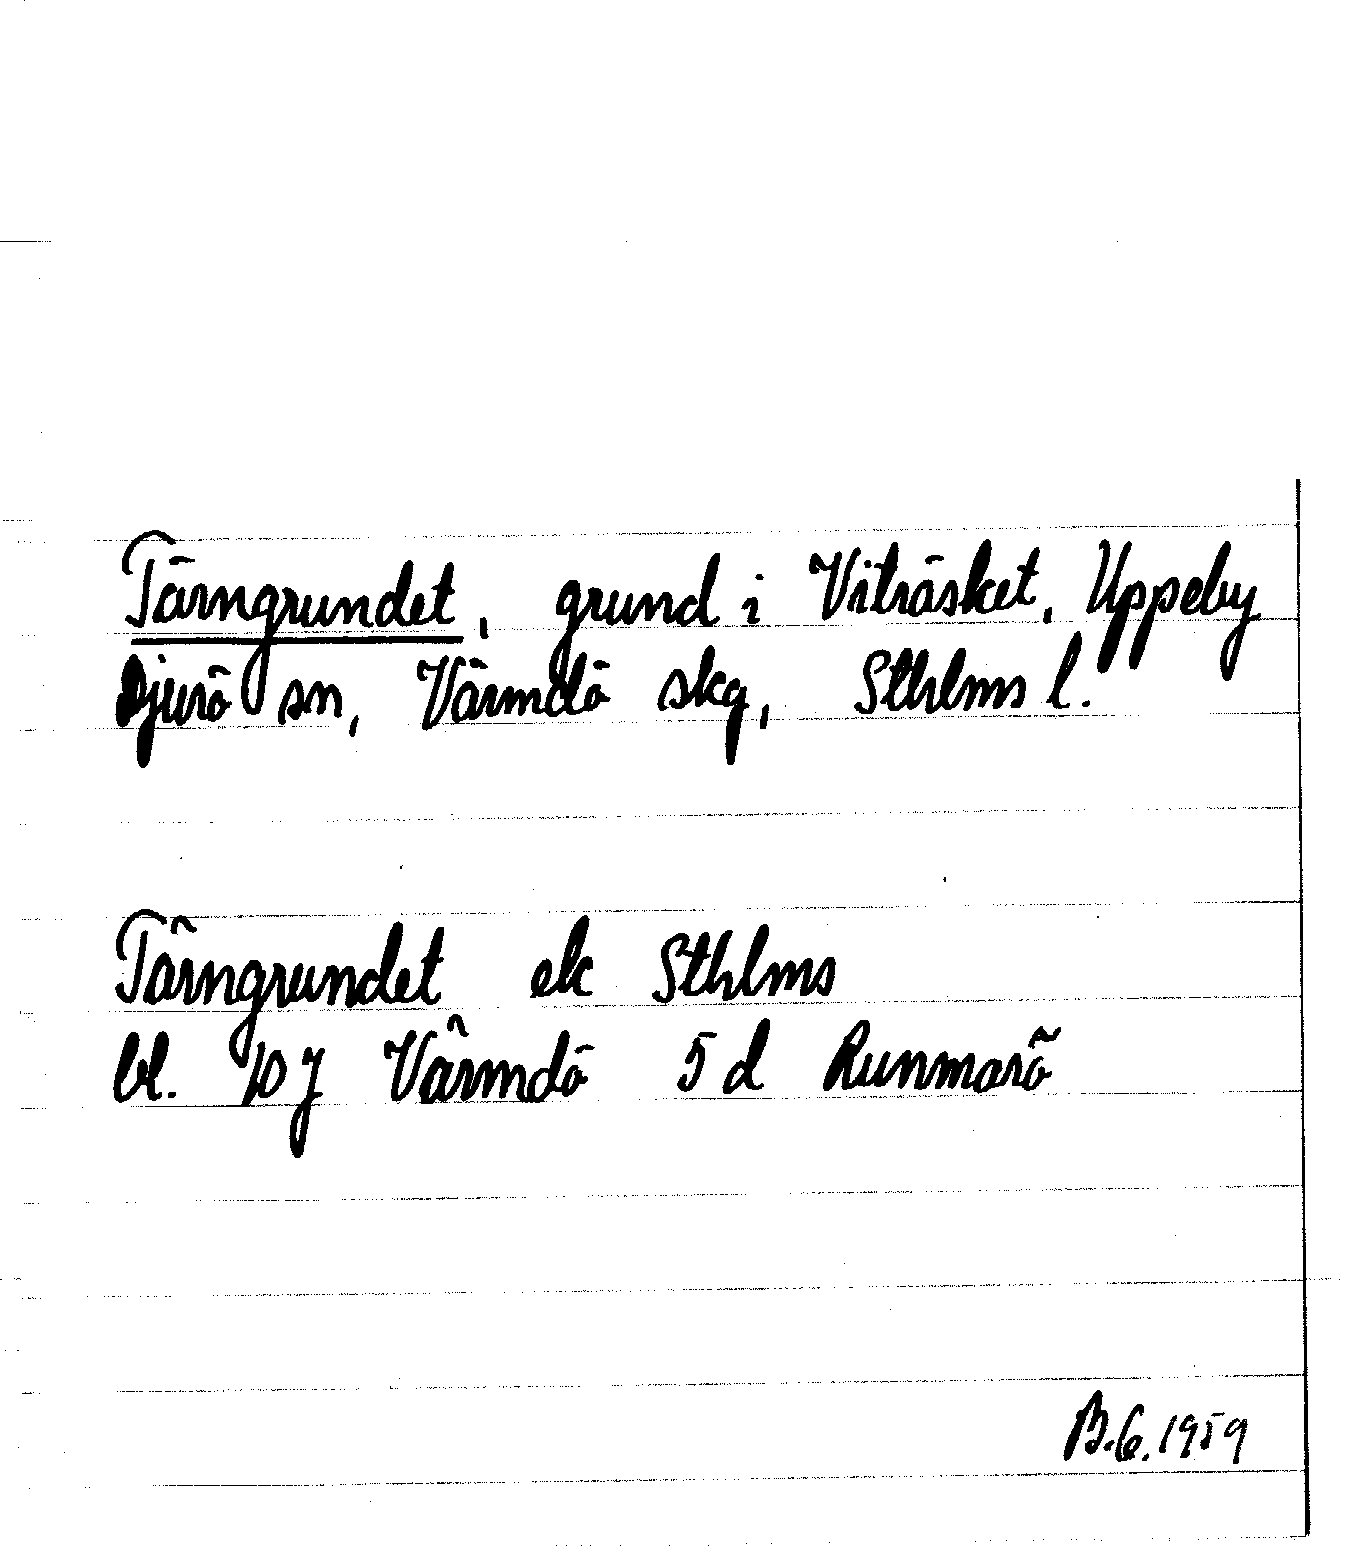 Tärngrundet, grund i Viträsket, Uppeby
Djurö sn, Värmdö skg, Sthlms l.
Tärngrundet ek Sthlms
bl. 10 J Värmdö 5 d Runmarö
B.G. 1959